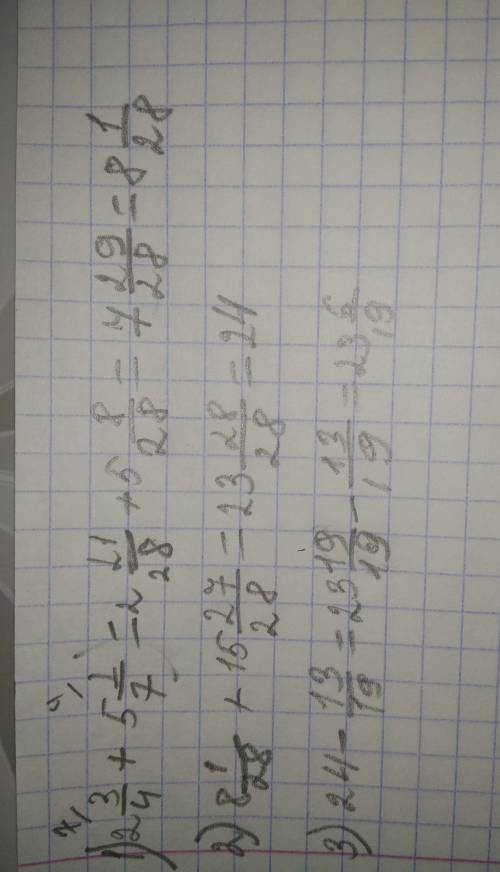 1) 2 3/4 + 5 2/7 = 2 21/28 + 5 8/28 = 7 29/28 = 8 1/28
2) 8 1/28 + 15 27/28 = 23 28/28 = 24
3) 24 - 13/19 = 23 19/19 - 13/19 = 23 6/19